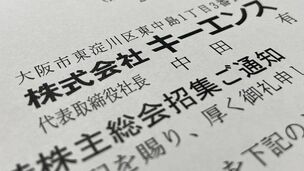 大阪市東淀川区東中島1丁目3番
株式会社 キーエンス
代表取締役社長 中 田 有
株主総会招集ご通知
を賜り、厚く御礼申
を下記の